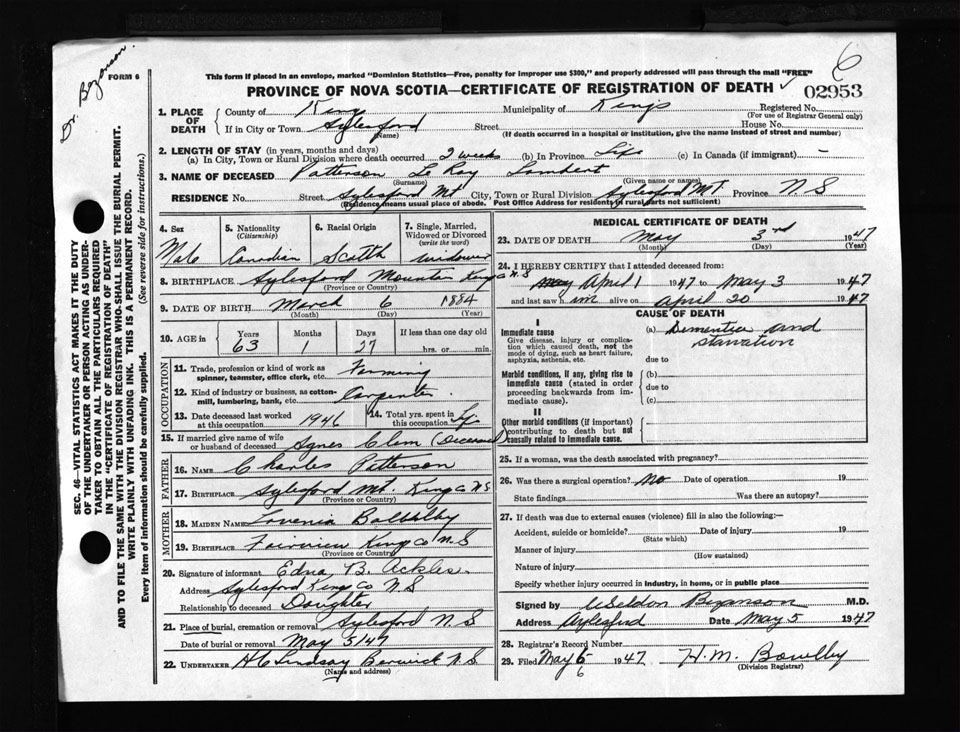 6
Dr. Bezanson.
FORM 6
This form if placed in an envelope, marked "Dominion Statistics—Free, penalty for improper use $300," and properly addressed will pass through the mail "FREE"
PROVINCE OF NOVA SCOTIA—CERTIFICATE OF REGISTRATION OF DEATH
02953
SEC. 46—VITAL STATISTICS ACT MAKES IT THE DUTY
OF THE UNDERTAKER OR PERSON ACTING AS UNDER-
TAKER TO OBTAIN ALL THE PARTICULARS REQUIRED
IN THE "CERTIFICATE OF REGISTRATION OF DEATH"
AND TO FILE THE SAME WITH THE DIVISION REGISTRAR WHO SHALL ISSUE THE BURIAL PERMIT.
WRITE PLAINLY WITH UNFADING INK. THIS IS A PERMANENT RECORD.
Every item of information should be carefully supplied. (See reverse side for instructions.)
1. PLACE OF DEATH
County of Kings Municipality of Kings Registered No.
(For use of Registrar General only)
If in City or Town Aylesford Street House No.
(Name) (If death occurred in a hospital or institution, give the name instead of street and number)
2. LENGTH OF STAY (in years, months and days)
(a) In City, Town or Rural Division where death occurred 2 weeks (b) In Province Life (c) In Canada (if immigrant) —
3. NAME OF DECEASED Patterson Le Roy Lambert
(Surname) (Given name or names)
RESIDENCE No. Street Aylesford Mt City, Town or Rural Division Aylesford Mt. Province N S
(Residence means usual place of abode. Post Office Address for residents in rural parts not sufficient)
4. Sex Male
5. Nationality (Citizenship) Canadian
6. Racial Origin Scotth
7. Single, Married, Widowed or Divorced (write the word) widower
8. BIRTHPLACE Aylesford Mountain Kings Co N S
(Province or Country)
9. DATE OF BIRTH March 6 1884
(Month) (Day) (Year)
10. AGE in Years 63 Months 1 Days 27 If less than one day old
hrs. or min.
OCCUPATION
11. Trade, profession or kind of work as spinner, teamster, office clerk, etc. Farming
12. Kind of industry or business, as cotton-mill, lumbering, bank, etc. Carpenter
13. Date deceased last worked at this occupation 1946
14. Total yrs. spent in this occupation Life
15. If married give name of wife or husband of deceased Agnes Clem (Deceased)
FATHER
16. NAME Charles Patterson
17. BIRTHPLACE Aylesford Mt. Kings Co N S
(Province or Country)
MOTHER
18. MAIDEN NAME Lovenia
19. BIRTHPLACE Fairview Kings Co N. S
(Province or Country)
20. Signature of informant Edna B. Ackles
Address Aylesford Kings Co N S
Relationship to deceased Daughter
21. Place of burial, cremation or removal Aylesford N. S
Date of burial or removal May 5/47
22. UNDERTAKER H C Lindsay Berwick N. S
(Name and address)
MEDICAL CERTIFICATE OF DEATH
23. DATE OF DEATH May 3rd 1947
(Month) (Day) (Year)
24. I HEREBY CERTIFY that I attended deceased from:
May April 1 1947 to May 3 1947
and last saw him alive on April 20 1947
CAUSE OF DEATH
I
Immediate cause
Give disease, injury or complication which caused death, not the mode of dying, such as heart failure, asphyxia, asthenia, etc.
(a) Dementia and
starvation
due to
Morbid conditions, if any, giving rise to immediate cause (stated in order proceeding backwards from immediate cause).
(b)
due to
(c)
II
Other morbid conditions (if important) contributing to death but not causally related to immediate cause.
25. If a woman, was the death associated with pregnancy?
26. Was there a surgical operation? No Date of operation 19
State findings Was there an autopsy?
27. If death was due to external causes (violence) fill in also the following:—
Accident, suicide or homicide? Date of injury 19
(State which)
Manner of injury
(How sustained)
Nature of injury
Specify whether injury occurred in industry, in home, or in public place
Signed by Weldon Bezanson M.D.
Address Aylesford Date May 5 1947
28. Registrar's Record Number
29. Filed May 6 1947 H. M. Bowlby
6 (Division Registrar)